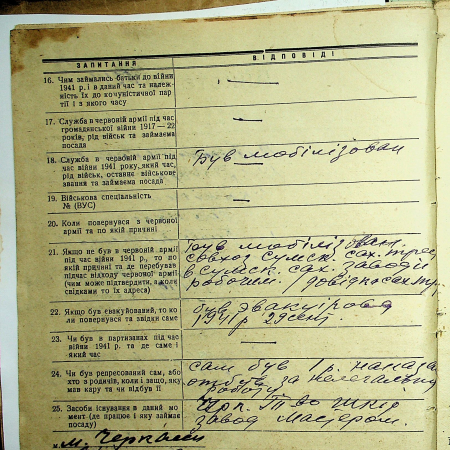 ЗАПИТАННЯ
ВІДПОВІДІ
16. Чим займались батьки до війни
1941 р. і в даний час та належ-
ність їх до комуністичної пар-
тії і з якого часу
—
17. Служба в червоній армії під час
громадянської війни 1917—22
років, рід військ та займаєма
посада
—
18. Служба в червоній армії під
час війни 1941 року, який час,
рід військ, останнє військове
звання та займаєма посада
Був мобілізован
19. Військова спеціальність
№ (ВУС)
—
20. Коли повернувся з червоної
армії та по якій причині
21. Якщо не був в червоній армії
під час війни 1941 р., то по
якій причині та де перебував
підчас відходу червоної армії
(чим може підтвердити, а коли
свідками то їх адреса)
був мобілізован.
совхоз Сумск. сах.
в Сумск. сах. заводі
робочим.
22. Якщо був евакуйований, то ко-
ли повернувся та звідки саме
був
1941 р 29
23. Чи був в партизанах під час
війни 1941 р. та де саме і
який час
24. Чи був репресований сам, або
хто з родичів, коли і защо, яку
мав кару та чи відбув її
сам був 1 р.
за
роботу
25. Засоби існування в даний мо-
мент (де працює і яку займає
посаду)
завод мастером.
м.